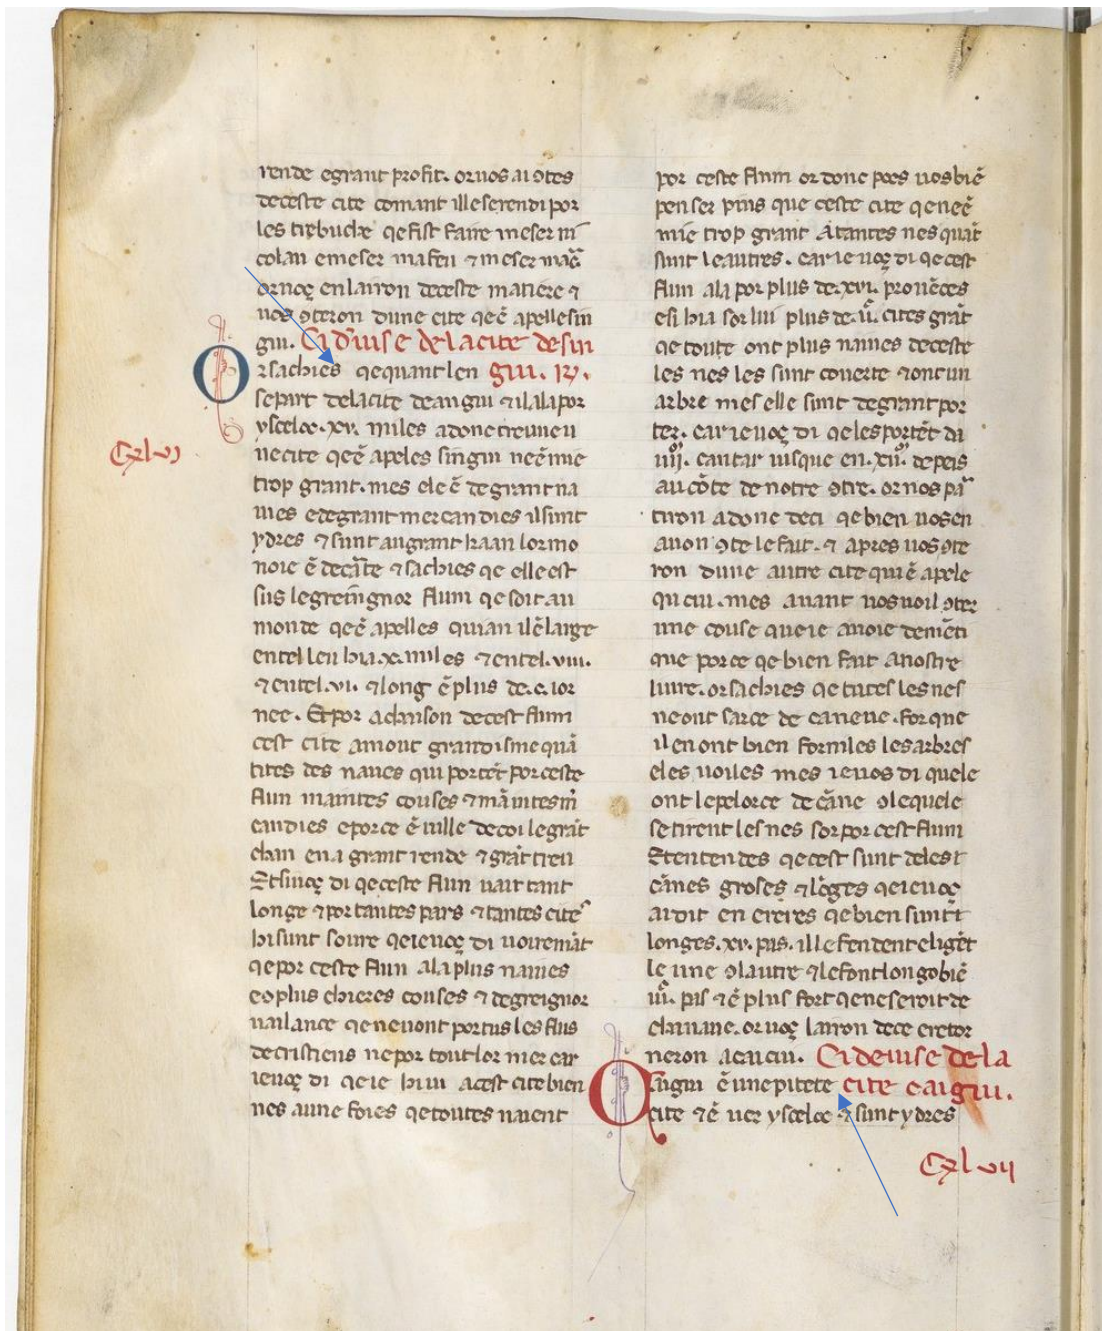 rende egrant profit. or uos ai 9tes
deceste cite comant ille se rendi por
les trebuche qe fist faire meser ni
colau e meser mafeu ⁊ meser marc
or noç en lairon deceste matiere ⁊
uos 9teron dune cite qe ē apelle sin
giu. Ci diuise de la cite de sin
Or sachies qe quant len giu. iv.
se part de la cite de angiu ⁊ il ala por
ysceloc .xv. miles adonc treuue u
Cxlvj
ne cite qe ē apeles singiu ne ē mie
trop grant. mes ele ē de grant na
uies e de grant mercandies il sunt
ydres ⁊ sunt au grant kaan lor mo
noie ē de carte ⁊ sachies qe elle est
sus le greingnor flum qe soit au
monde qe ē apelles quian il ē large
en tel leu hia .x. miles ⁊ en tel .viii.
⁊ en tel .vi. ⁊ long ē plus de .c. ior
nee. Et por achaison de cest flum
cest cite a mout grandisme quā
tites des naues qui portēt por ceste
flun maintes couses ⁊ māintes m̄
candies e por ce ē uille de coi le grāt
chan en a grant rende ⁊ grāt treu
Et si uoç di qe ceste flun uait tant
longe ⁊ por tantes pars ⁊ tantes cites
hi sunt soure qe ie uoç di uoiremāt
qe por ceste flun ala plus nauies
e o plus chieres couses ⁊ de greignor
uailance qe ne uont por tus les flus
de cristiens ne por tout lor mer car
ie uoç di qe ie hi ui a cest cite bien
nes a une foies qe toutes naient
por ceste flum or donc poes uos biē
penser puis que ceste cite qe ne ē
mie trop grant A tantes nes quāt
sunt le autres. car ie uoç di qe cest
flun ala por plus de .xvi. prouēces
e si hia sor lui plus de .iiᶜ. cites grāt
qe toute ont plus nauies de ceste
les nes les sunt couerte ⁊ ont un
arbre mes elle sunt de grant por
ter. car ie uoç di qe les portēt da
iiijᵒʳ. cantar iusque en .xiiᵒʳ. de peis
au cōte de notre 9tre. or nos pa
tiron adonc deci qe bien uos en
auon 9te le fait. ⁊ apres uos 9te
ron dune autre cite qui ē apele
qu ciu. mes auant uos uoil 9ter
une couse que ie auoie demēti
que por ce qe bien fait a nostre
liure. or sachies qe tutes les nes
ne ont sarce de caneue. for que
il en ont bien formles les arbres
e les uoiles mes ie uos di qu ele
ont le pelorce de cāne 9 le quele
se tirent les nes sor por cest flum
Et entendes qe cest sunt de les
cānes groses ⁊ lōges qe ie uoç
ai dit en erieres qe bien sunt
longes .xv. pas. il le fendent e ligēt
le une 9 lautre ⁊ le font longo biē
iiiᶜ. pas ⁊ ē plus fort qe ne seroit de
chauane. or uoç lairon de ce e retor
neron a caiciu. Ci deuise de la
Caigiu ē une pitete cite caigiu.
cite ⁊ ē uer ysceloc ⁊ sunt ydres
Cxlvij